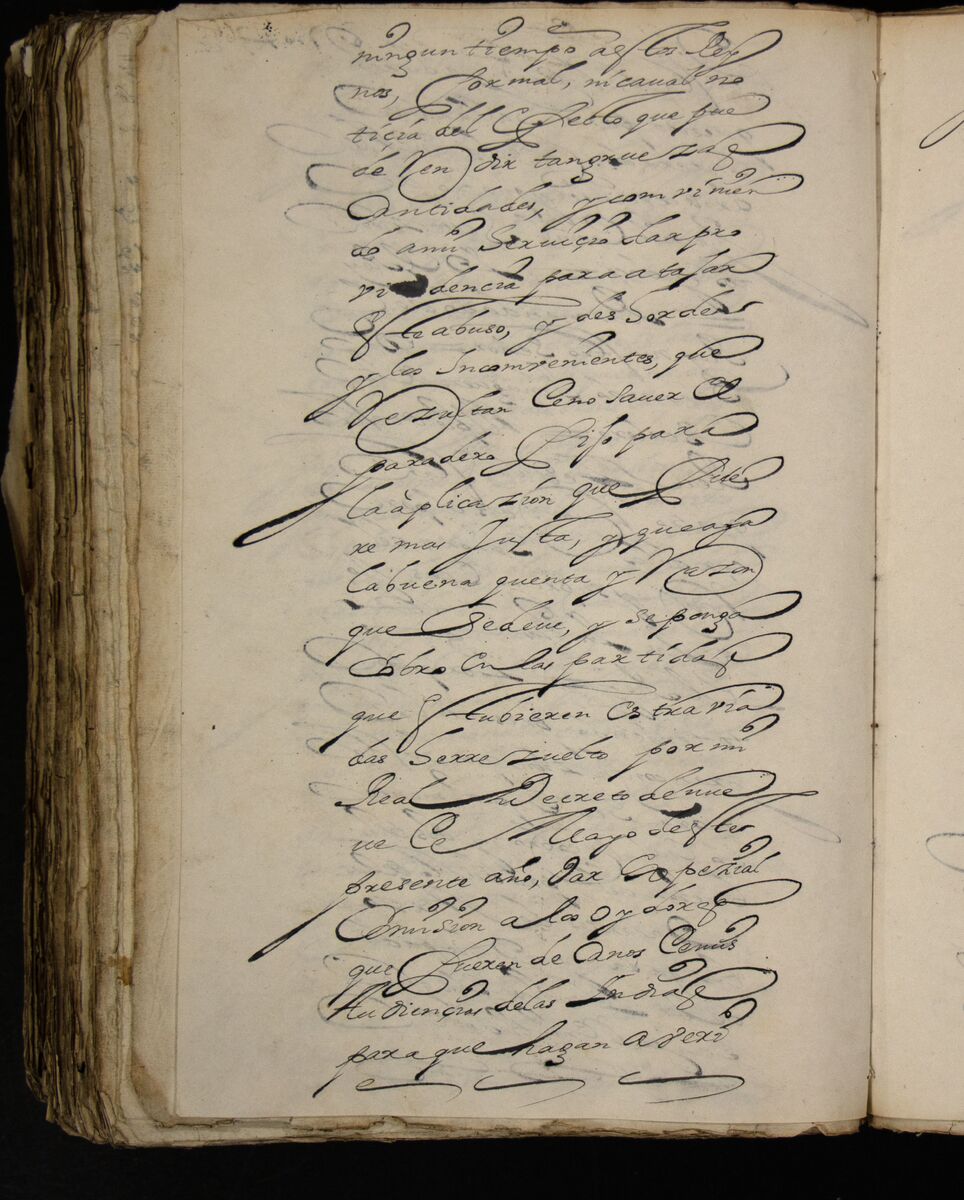 ningun tiempo a estos Rey
nos, formal, ni caual no
ticia del Credito que pue
de Ven dir tan gruezas
Cantidades, y comvinien
do a mi Servicio dar pro
vi dencia para atajar
Este abuso, y des Orden
y los Incomvenientes, que
Rezultan Ce no saver el
paradero fijo para
la àplicazión que fue
re mas Justa, y que aya
la buena quenta y Razon
que se deue, y se ponga
Cobro en las partidas
que Estubieren Estravia
das he rrezuelto por mi
Real Decreto de nue
ue Ce Mayo de este
presente año, dar Especial
Comision a los Oydores
que fueren de Canos Ce mis
Audiencias de las Indias
para que hagan averi